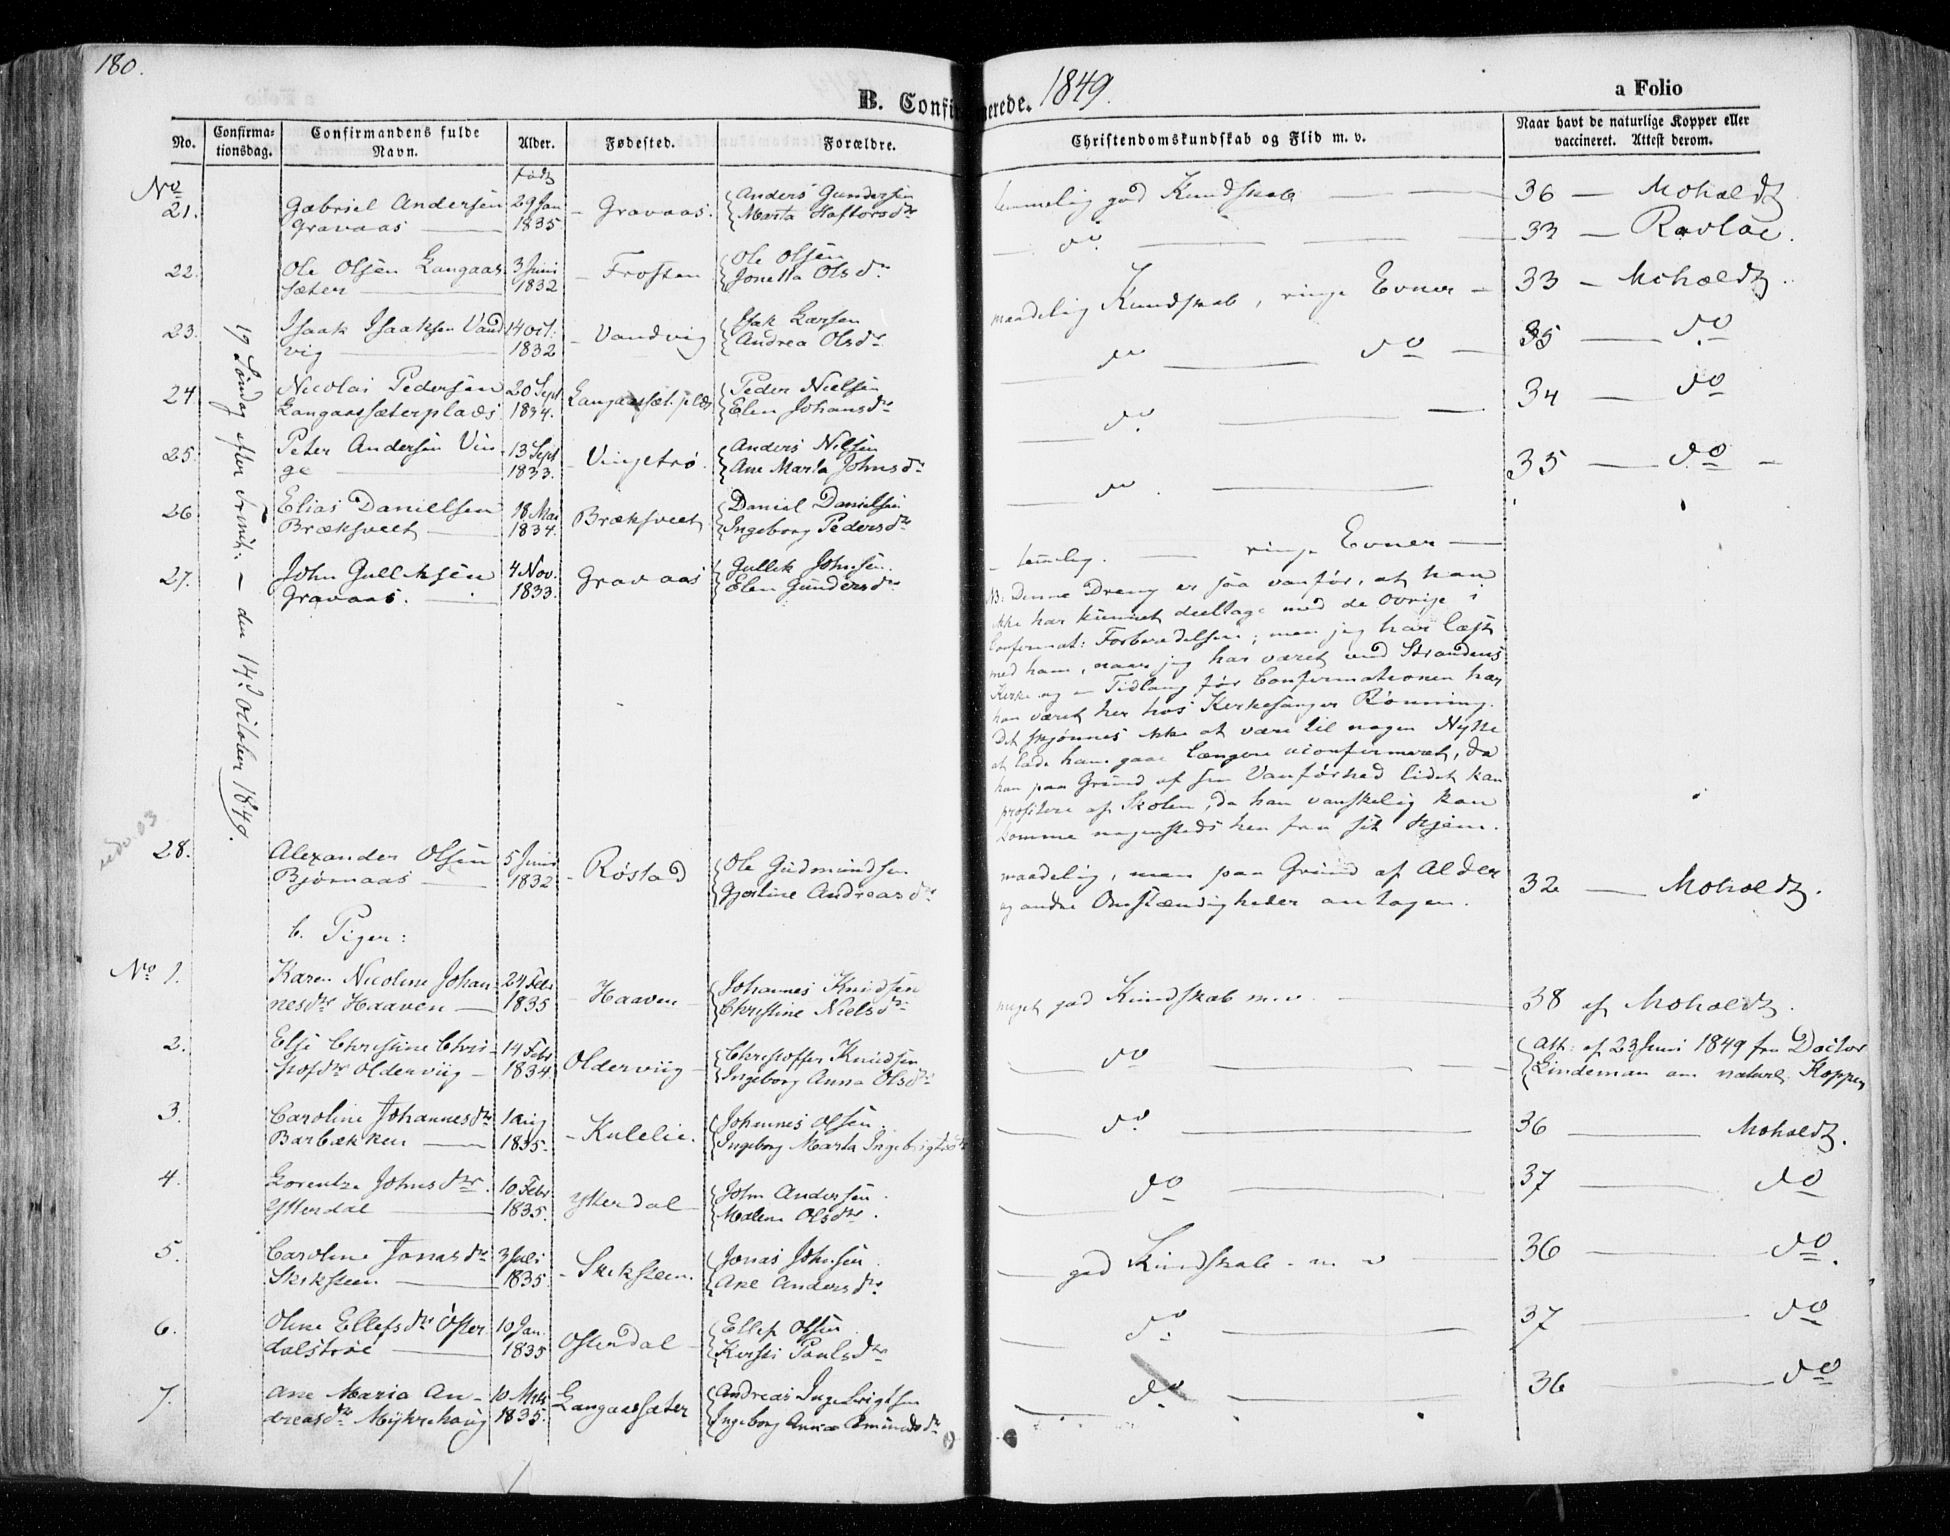 180.
B. Confirmerede. 1849.
a Folio
No.
Confirma-
tionsdag.
Confirmandens fulde
Navn.
Alder.
Fødested.
Forældre.
Christendomskundskab og Flid m. v.
Naar havt de naturlige Kopper eller
vaccineret. Attest derom.
19 Søndag efter Trinit: – den 14d October 1849.
Født
No
21.
Gabriel Andersen
Gravaas
29 Jan
1835
Gravaas.
Anders Gundersen
Marta Haftorsdr
temmelig god Kundskab
36 — Moholdt
22.
Ole Olsen Langaas
sæter
3 Juni
1832
Frosten
Ole Olsen
Jonetta Olsdr
do
33 — Ravloe.
23.
Isaak Isaaksen Vand
vig
14 Oct.
1832
Vandvig
Isak Larsen
Andrea Olsdr
maadelig Kundskab, ringe Evner
33 — Moholdt.
24.
Nicolai Pedersen
Langaassæterplads
20 Sept
1834.
Langaassæt.plds
Peder Nielsen
Elen Johansdr
do — do
35 — do
25.
Peter Andersen Vin
ge
13 Sept
1833.
Vingetrø.
Anders Nilsen
Ane Marta Johnsdr
do
34 — do
26
Elias Danielsen
Brækstveet
18 Mai
1834.
Brækstveet
Daniel Danielsen
Ingeborg Pedersdr
do
35 — do
27.
John Gulliksen
Gravaas.
4 Nov.
1833.
Gravaas
Gullik Johnsen.
Elen Gundersdr
temelig. — ringe Evner
NB: Denne Dreng er saa vanfør, at han
ikke har kunnet deeltage med de Øvrige i
Confirmat: Forberedelsen; men jeg har læst
med ham, naar jeg har været ved Strandens
Kirke og en Tidlang før Confirmationen har
han været her hos Kirkesanger Rønning.
Det skjønnes ikke at være til nogen Nytte
at lade ham gaae længere uconfirmeret, da
han paa Grund af sin Vanførhed lidet kan
profitere af Skolen, da han vanskelig kan
komme nogensteds hen fra sit Hjem.
28.
Alexander Olsen
Bjørnaas
5 Juni
1832
Røstad
Ole Gudmundsen
Gjertine Andreasdr
maadelig, men paa Grund af Alder
og andre Omstændigheder antagen.
32 — Moholdt.
b. Piger:
No 1.
Karen Nicoline Johan
nesdr Haaven
24 Feb
1835
Haaven
Johannes Knudsen
Christine Nielsdr
meget god Kundskab m.v.
38 af Moholdt.
2.
Else Christine Chri-
stofdr Oldervig
14 Febr
1834.
Oldervig
Christoffer Knudsen
Ingeborg Anna Olsdr
do
Att: af 23 Juni 1849 fra Doctor
Lindeman om naturl. Kopper
3.
Caroline Johannesdr
Barbækken
1 Aug
1835.
Kulelie.
Johannes Olsen.
Ingeborg Marta Ingebrigtsdr
do
36 — Moholdt.
4.
Lorentze Johnsdr.
Ytterdal
10 Febr
1835.
Ytterdal
John Andersen
Malene Olsdr.
do
37 — do
5.
Caroline Jonasdr
Skiksteen
3 Juli
1835
Skiksteen.
Jonas Johnsen
Ane Andersdr
god Kundskab. m v
36 — do.
6.
Oline Ellefsdr Øster
dalstrøe
10 Jan.
1835
Østerdal
Ellef Olsen
Kirsti Paulsdr
do
37 — do
7.
Ane Maria An-
dreasdr Myhrehaug
10 Mrts
1835.
Langaassæter
Andreas Ingebrigtsen
Ingeborg Anna Omundsdr
do
36 — do